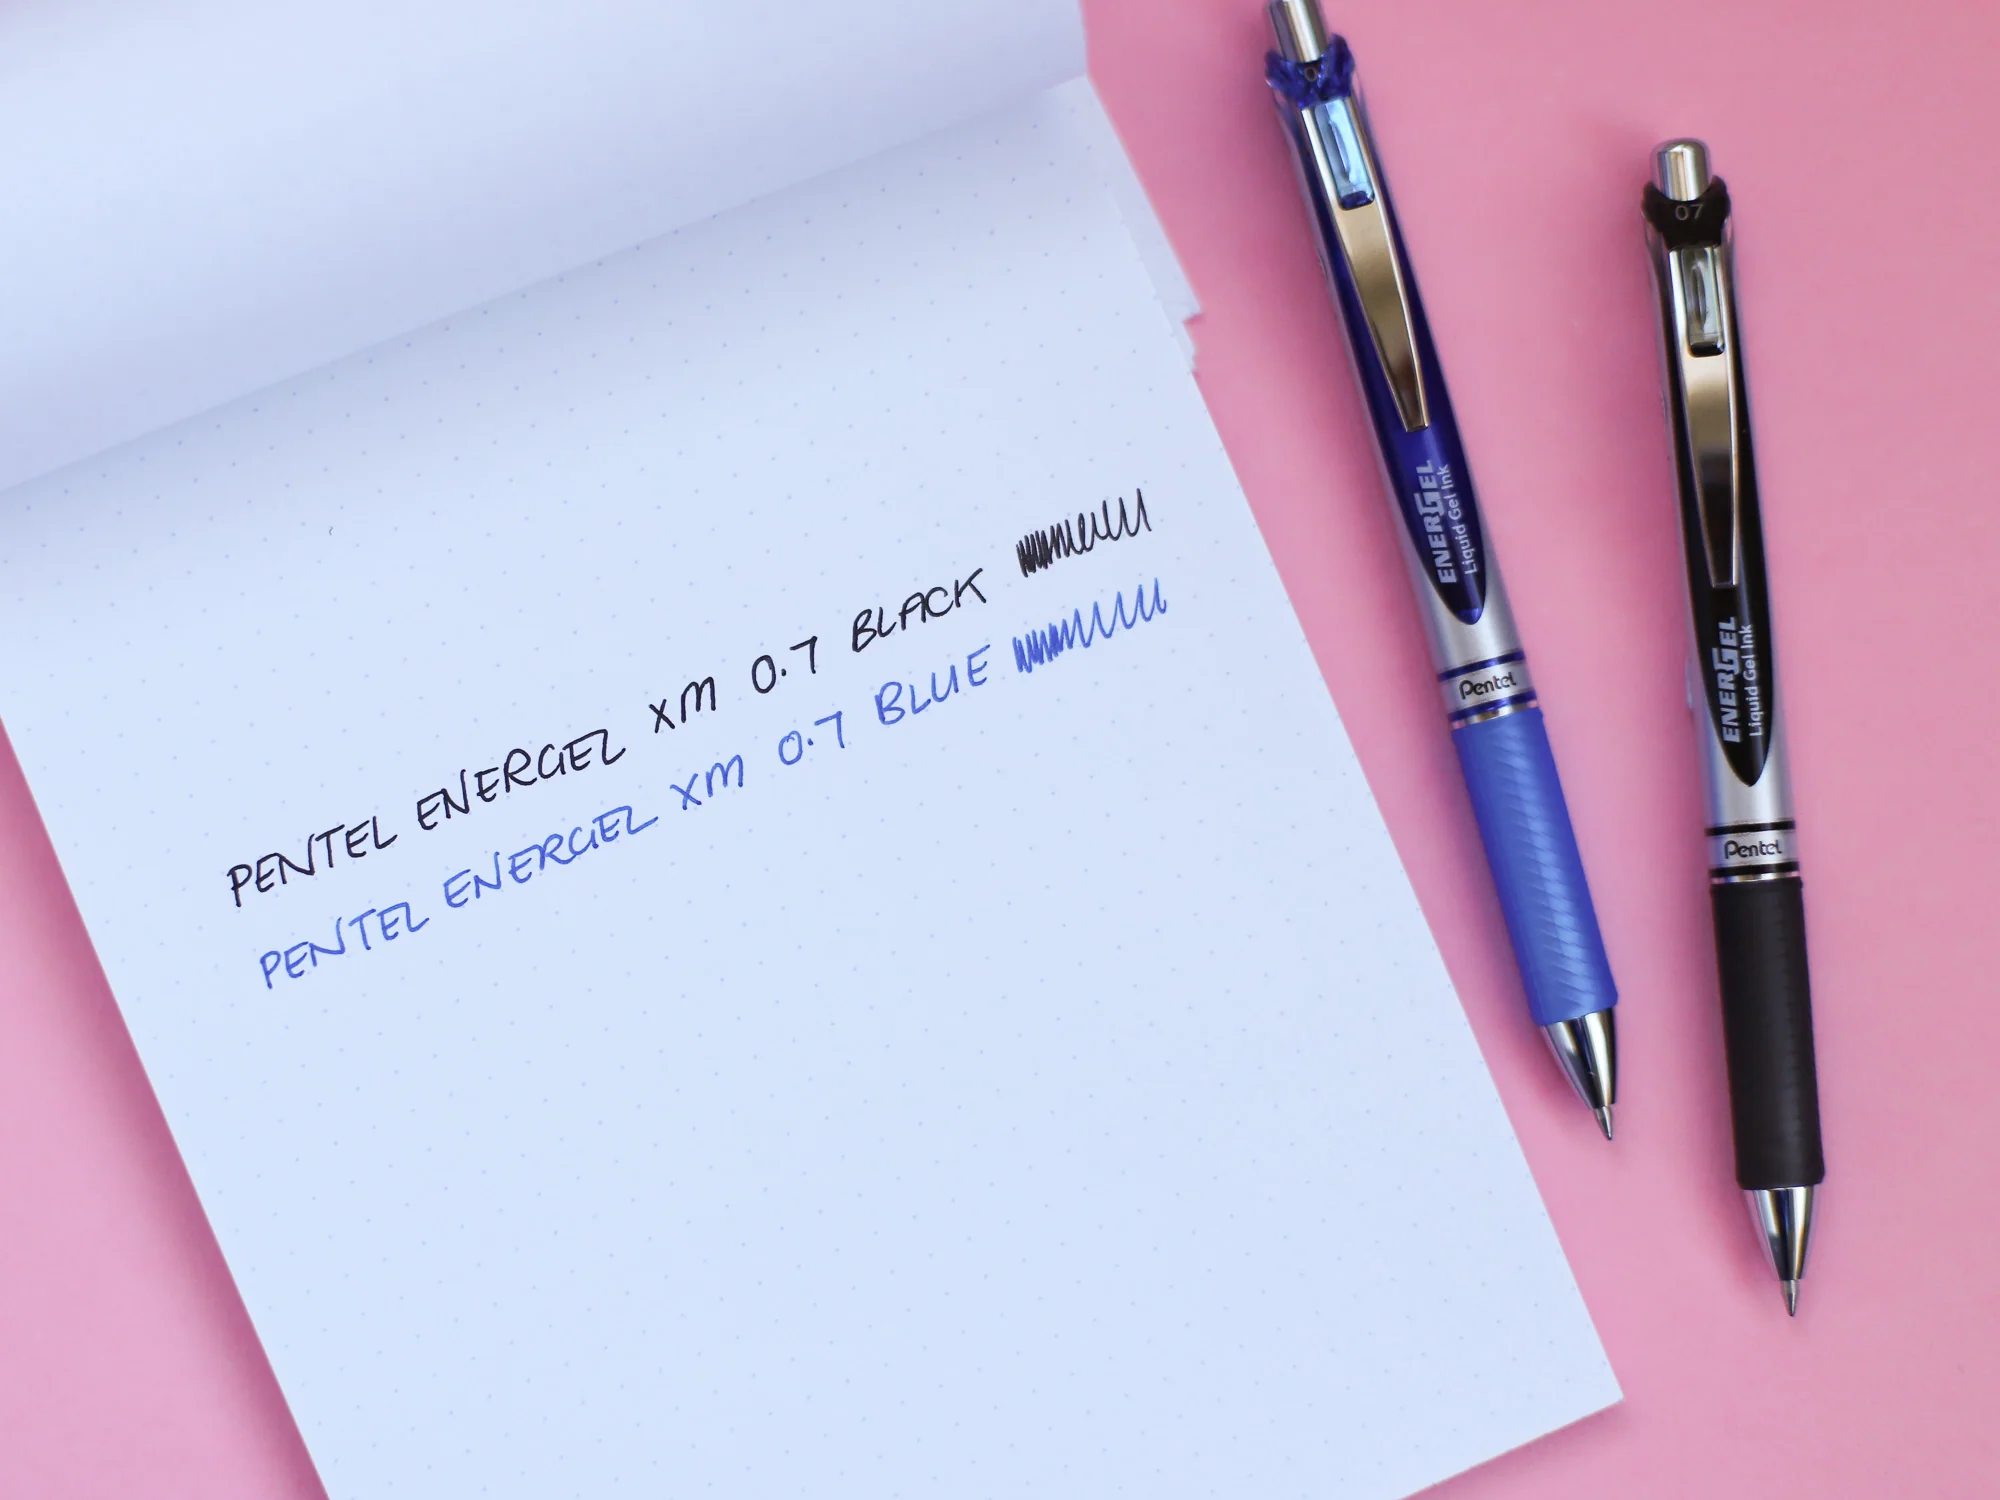 PENTEL ENERGEL XM 0.7 BLACK
PENTEL ENERGEL XM 0.7 BLUE
ENERGEL
Liquid Gel Ink
Pentel
07
ENERGEL
Liquid Gel Ink
Pentel